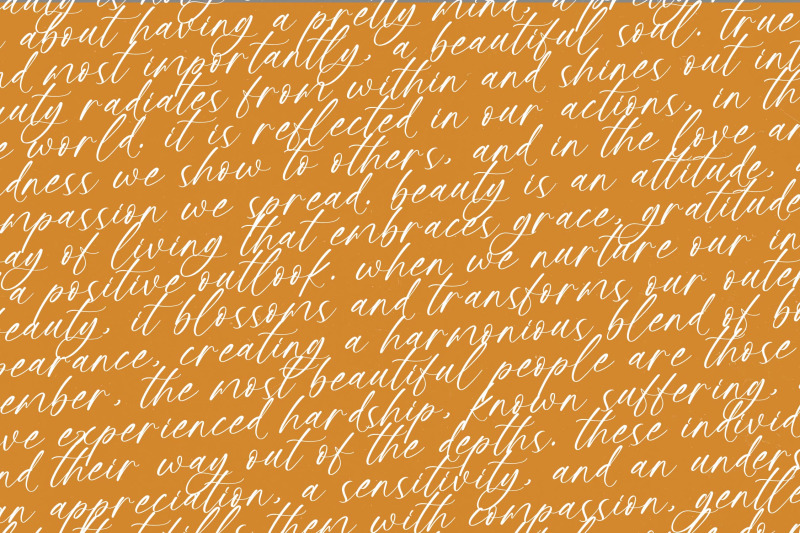 about having a pretty mind, a pretty
nd most importantly, a beautiful soul. true
auty radiates from within and shines out int
e world. it is reflected in our actions, in th
dness we show to others, and in the love an
mpassion we spread. beauty is an attitude, a
ay of living that embraces grace, gratitude
a positive outlook. when we nurture our in
eauty, it blossoms and transforms our outer
pearance, creating a harmonious blend of bo
ember, the most beautiful people are those
ve experienced hardship, known suffering,
nd their way out of the depths. these individ
an appreciation, a sensitivity, and an unders
them with compassion, gentle